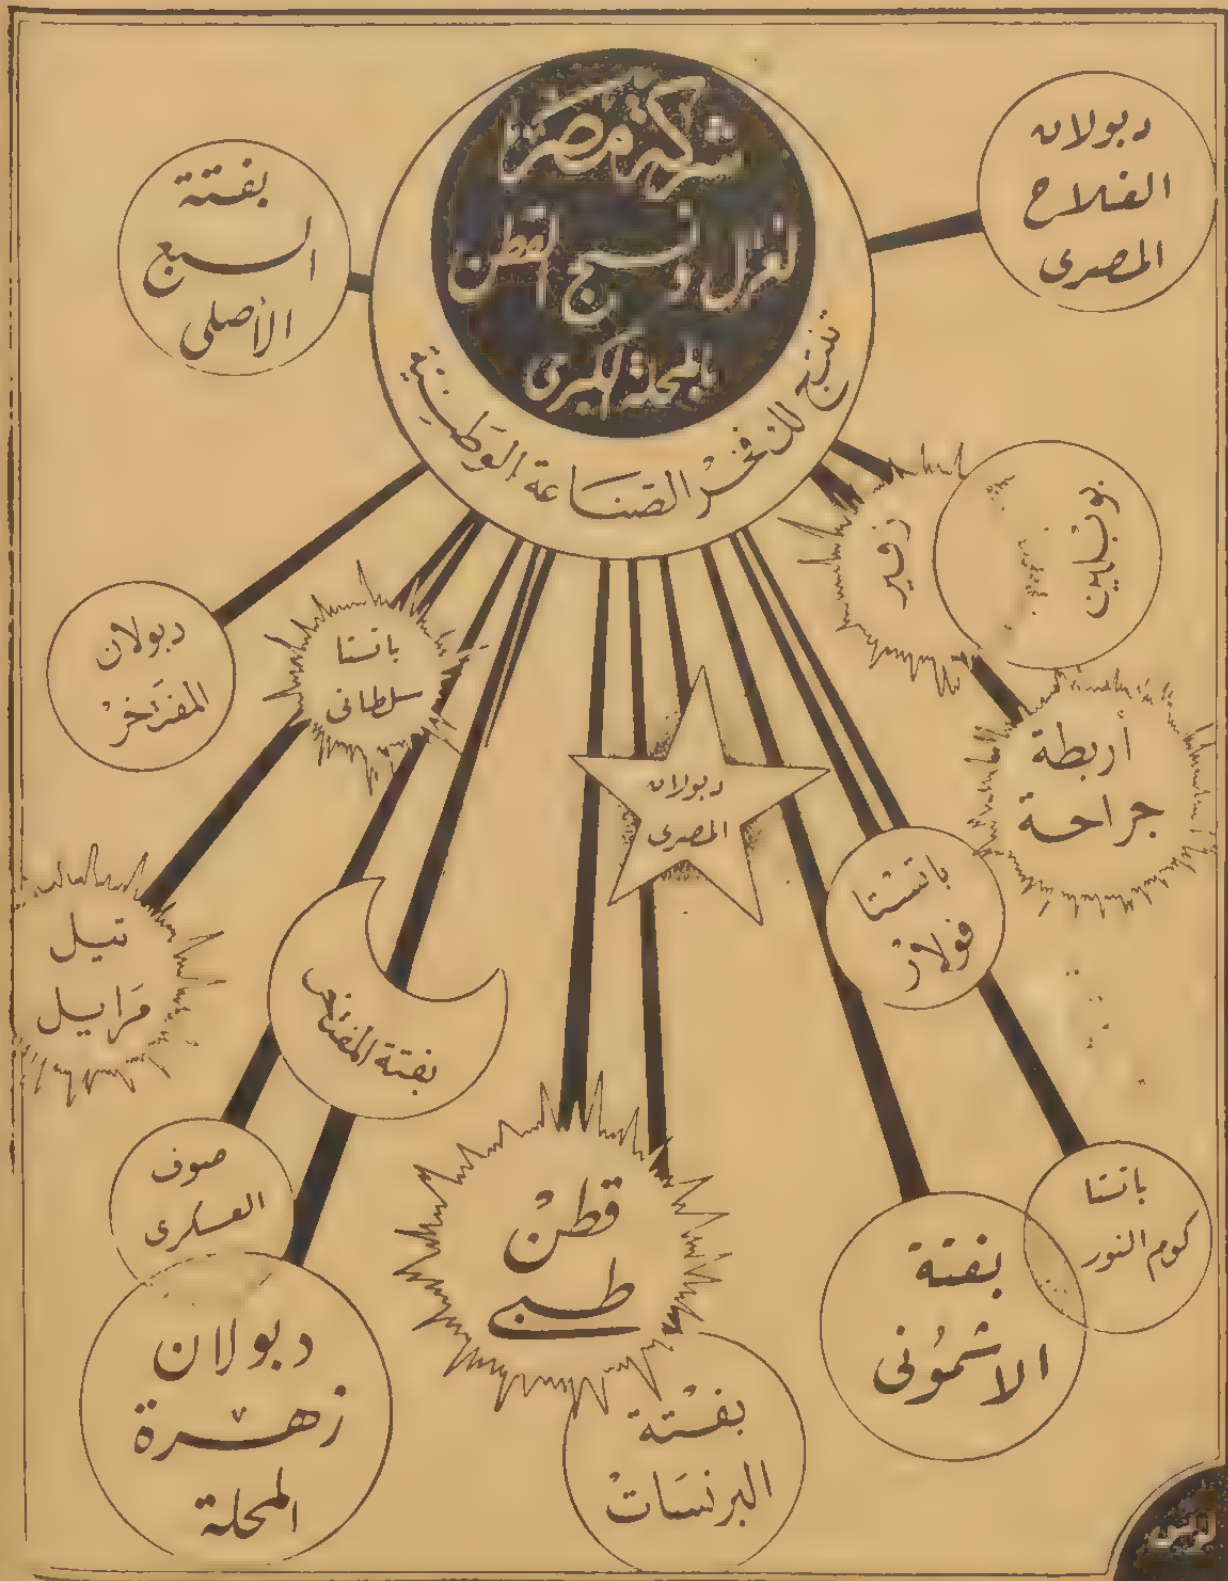 شركة مصر
لغزل ونسج القطن
بالمحلة الكبرى
تنتج لك فخر الصناعة الوطنية
دبولان
الفلاح
المصرى
بفتة
السبع
الأصلى
زفير
بوبلين
دبولان
المفتخر
باتستا
سلطانى
أربطة
جراحة
دبولان
المصرى
باتستا
فولاذ
تيل
مرايل
بفتة المفتخر
صوف
العسكرى
باتستا
كوم النور
قطن
طبى
بفتة
الاشمونى
دبولان
زهرة
المحلة
بفتة
البرنسات